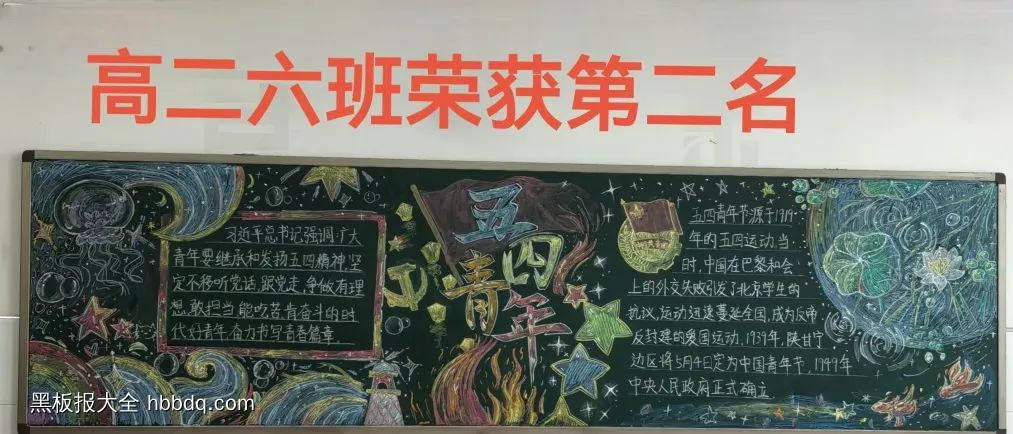 高二六班荣获第二名
习近平总书记强调:广大
青年要继承和发扬五四精神,坚
定不移听党话、跟党走,争做有理
想、敢担当、能吃苦、肯奋斗的时
代好青年,奋力书写青春篇章
五四
青年
五四青年节源于1919
年的五四运动,当
时,中国在巴黎和会
上的外交失败引发了北京学生的
抗议,运动迅速蔓延全国,成为反帝
反封建的爱国运动,1939年,陕甘宁
边区将5月4日定为中国青年节,1949年
中央人民政府正式确立
黑板报大全 hbbdq.com